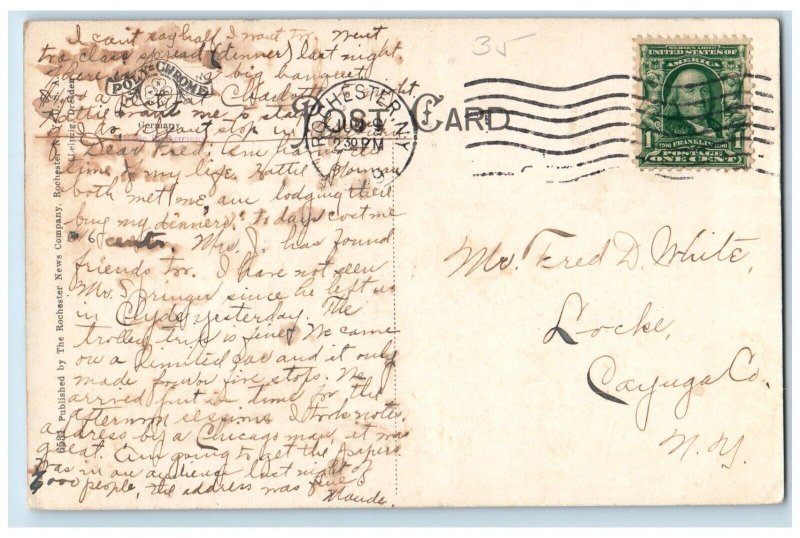 I can't say half I want to. Went
to a class spread (dinner) last night
there big banquet
a at Charlotte
me to
to stop in
Dear Fred: am having
time of my life. Hattie
both met me, am lodging there
buy my dinners, to days cost me
16 cents. Mrs. J. has found
friends too. I have not seen
Mr. Springer since he left us
in Clyde yesterday. The
trolley trip is fine. We came
on a limited car and it only
made four or five stops. We
arrived just in time for the
afternoon session. I took notes.
address by a Chicago man, it was
great. Am going to get the papers
was in an audience last night of
6000 people, the address was fine
Maude
POLY-CHROME
Germany
6531 Published by The Rochester News Company, Rochester, N.Y.
Leipzig
POST CARD
35
ROCHESTER, N.Y.
2 30 PM
SERIES 1902
UNITED STATES OF
AMERICA
1 FRANKLIN 1
1706 1790
POSTAGE
ONE CENT
Mr. Fred D. White,
Locke,
Cayuga Co.
N.Y.